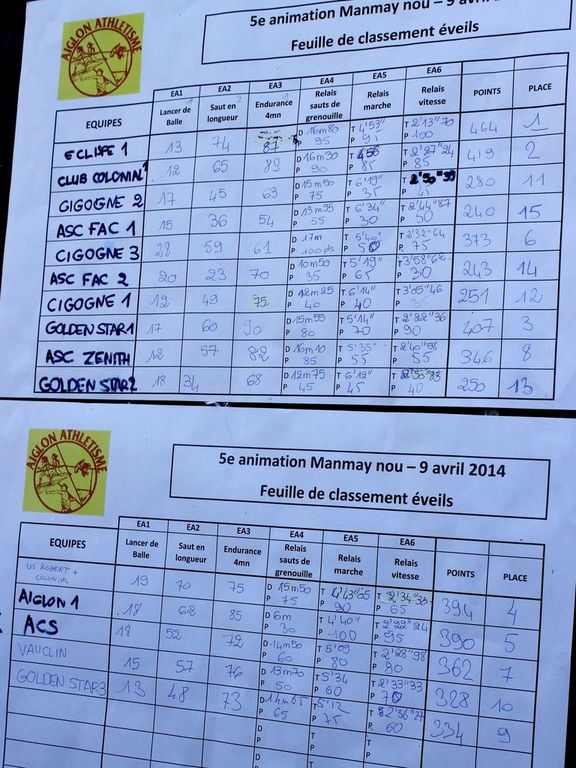 AIGLON ATHLETISME
5e animation Manmay nou – 9 avril 20
Feuille de classement éveils
EA1 EA2 EA3 EA4 EA5 EA6
EQUIPES Lancer de Balle Saut en longueur Endurance 4mn Relais sauts de grenouille Relais marche Relais vitesse POINTS PLACE
ECLIPSE 1 13 74 87 D 16m80 P 95 T 4'53" P T 2'13"70 P 100 464 1
CLUB COLONIAL 1 12 65 89 D 16m30 P 90 T 456 P 85 T 2'27"24 P 85 419 2
GIGOGNE 2 17 45 63 D 15m50 P 75 T 6'19" P 35 T 2'50"59 P 45 280 11
ASC FAC 1 15 36 54 D 13m95 P 55 T 6'34" P 30 T 2'44"87 P 50 240 15
CIGOGNE 3 28 59 61 D 17m P 100 pts T 5'40" P 50 T 2'32"64 P 75 373 6
ASC FAC 2 20 23 70 D 10m50 P 35 T 5'19" P 65 T 3'58"62 P 30 243 14
CIGOGNE 1 12 49 75 D 12m25 P 40 T 6'14" P 40 T 3'05"46 P 251 12
GOLDEN STAR 1 17 60 90 D 15m55 P 80 T 5'14" P 70 T 2'22"36 P 90 407 3
ASC ZENITH 12 57 82 D 16m10 P 85 T 5'35" P 55 T 2'40"58 P 55 346 8
GOLDEN STAR 2 18 34 68 D 12m75 P 45 T 6'12" P 45 T P 40 250 13
AIGLON ATHLETISME
5e animation Manmay nou – 9 avril 2014
Feuille de classement éveils
EA1 EA2 EA3 EA4 EA5 EA6
EQUIPES Lancer de Balle Saut en longueur Endurance 4mn Relais sauts de grenouille Relais marche Relais vitesse POINTS PLACE
US ROBERT + COLONIAL 19 70 75 D 15m50 P 75 T 4'43"65 P 90 T 2'34"35 P 65 394 4
AIGLON 1 18 62 85 D 6m P 30 T 4'40" P 100 T 2'22"24 P 95 390 5
ACS 18 52 72 D 14m50 P 60 T 5'09 P 80 T 2'28"98 P 80 362 7
VAUCLIN 15 57 76 D 13m70 P 50 T 5'34 P 60 T 2'33"33 P 70 328 10
GOLDEN STAR 3 13 48 73 D 14m65 P 65 T 5'12 P 75 T 2'36"27 P 60 334 9
D P T P T P
D P T P T P